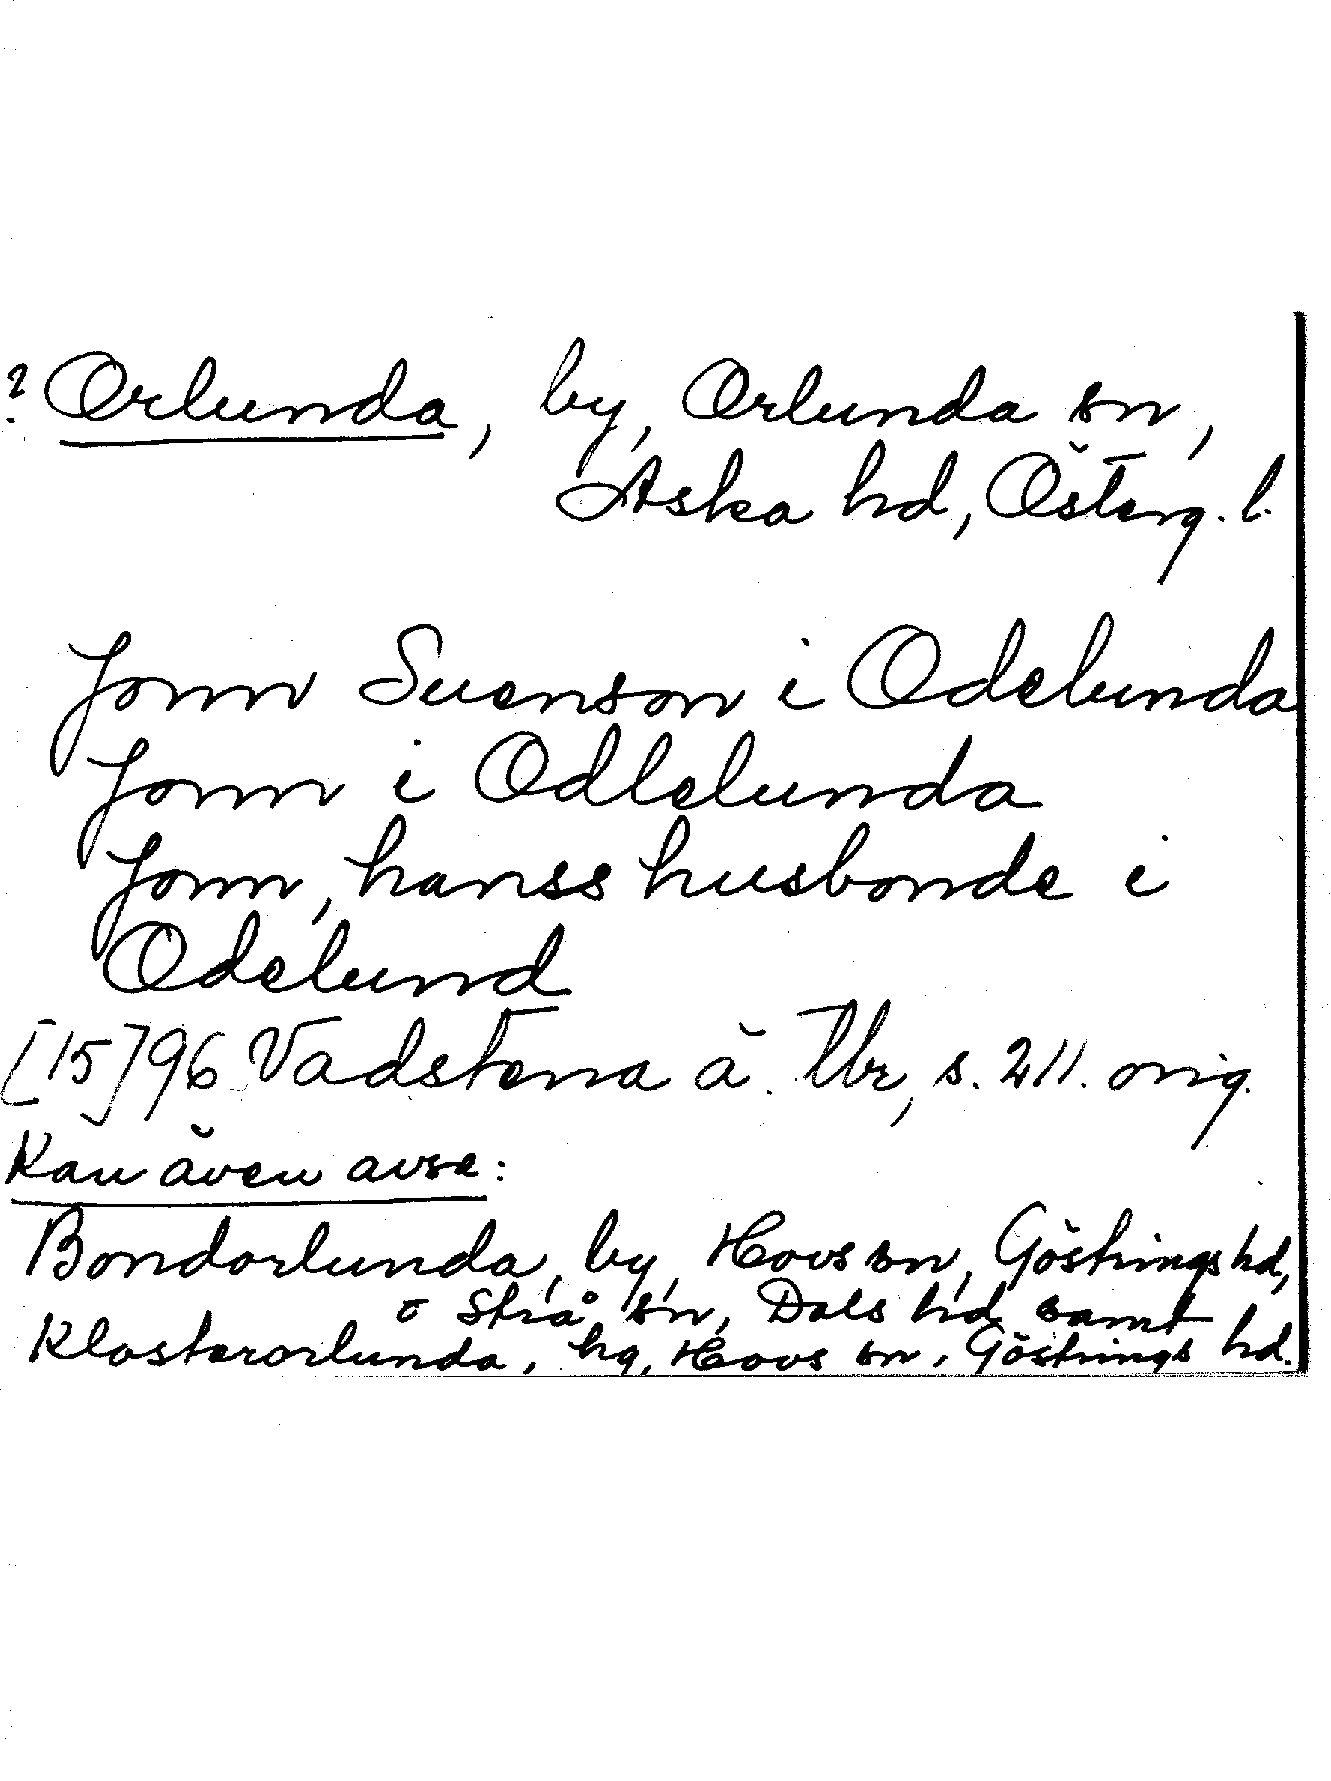 ? Orlunda, by, Orlunda sn,
Aska hd, Österg. l.
Jonn Suenson i Odelunda
Jonn i Odlelunda
Jonn, hanss husbonde i
Odelund
[15]96 Vadstena ä. Tbr, s. 211. orig.
Kan även avse:
Bondorlunda, by, Hovs sn, Göstrings hd,
o Strå sn, Dals hd samt
Klosterorlunda, hg, Hovs sn, Göstrings hd.